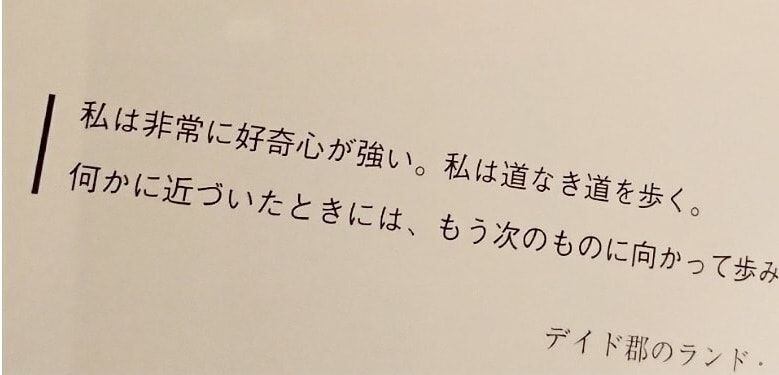 私は非常に好奇心が強い。私は道なき道を歩く。
何かに近づいたときには、もう次のものに向かって歩み
デイド郡のランド・